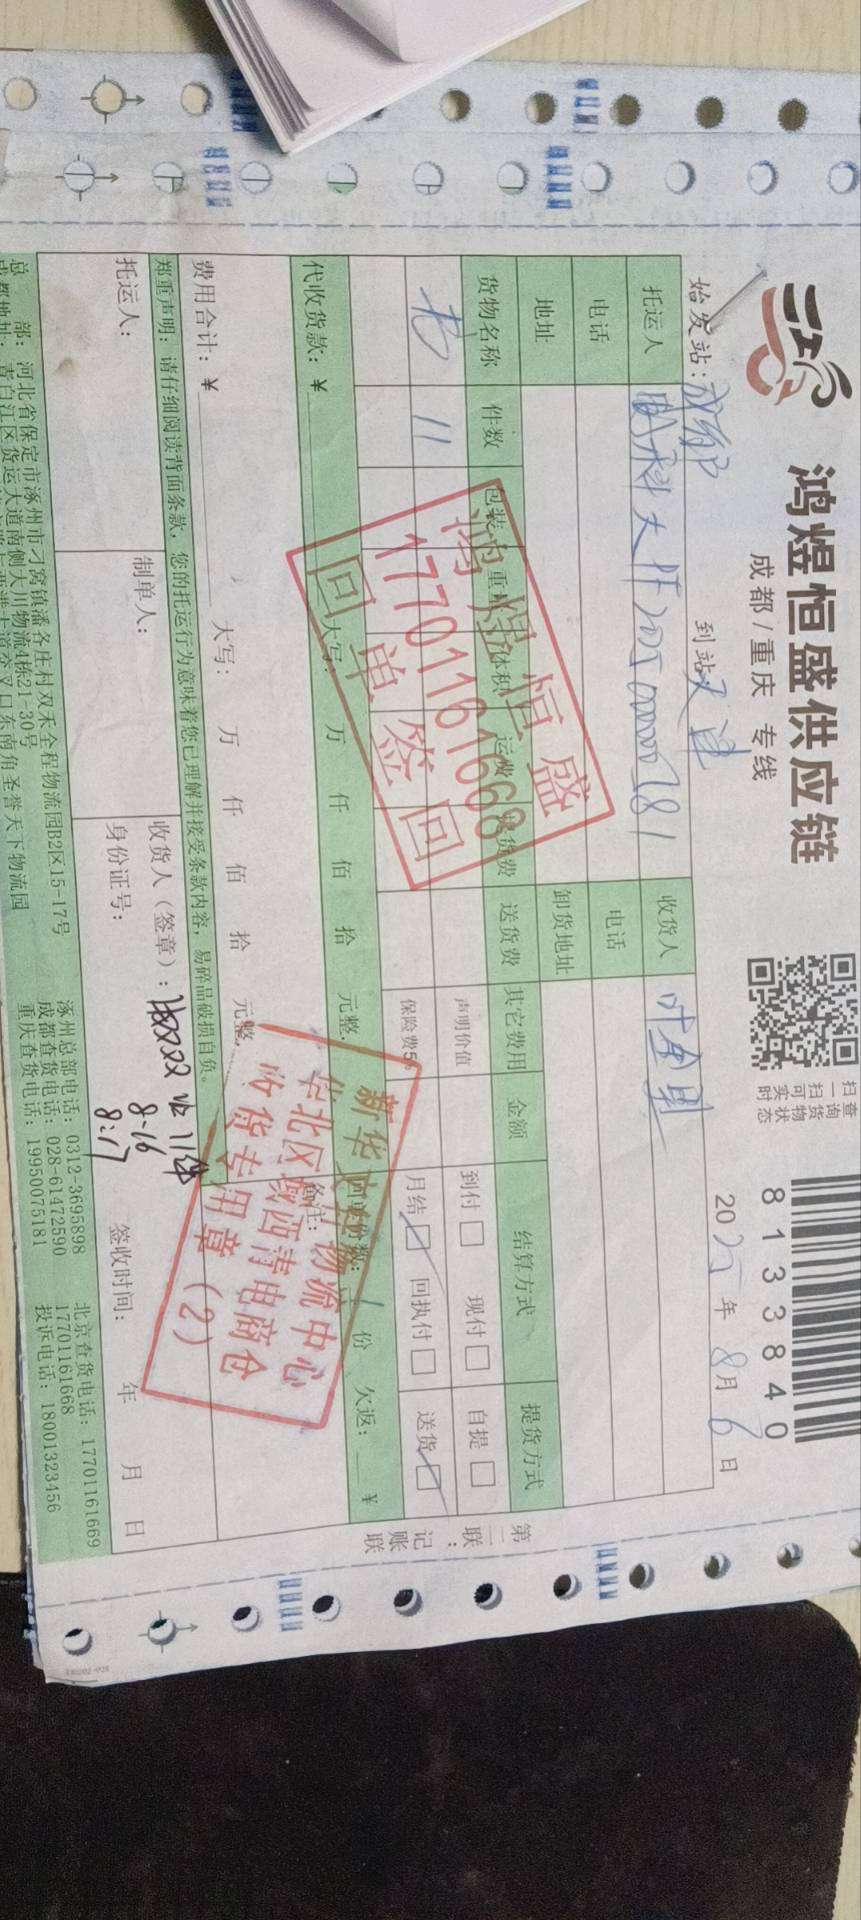 鸿煜恒盛供应链
成都/重庆 专线
扫一扫 查询可实时货物状态
8133840
始发站：成都 到站 天津
2025年8月6日
托运人
收货人 叶全果
电话
电话
地址
卸货地址
货物名称 件数 包装 重量 体积 运费 送货费 其它费用 金额 结算方式 提货方式
声明价值 到付□ 现付□ 自提□
书 11 保险费5 月结☑ 回执付□ 送货☑
代收货款：￥ 大写： 万 仟 佰 拾 元整。 1 份 欠返： ￥
费用合计：￥ 大写： 万 仟 佰 拾 元整。 备注：
郑重声明：请仔细阅读背面条款，您的托运行为意味着您已理解并接受条款内容，易碎品破损自负。
托运人： 制单人： 收货人（签章）： 11件
身份证号： 8.16 8:17 签收时间： 年 月 日
总 部：河北省保定市涿州市刁窝镇潘各庄村双禾全程物流园B2区15-17号
成都地址：青白江区货运大道南侧大川物流4栋21-30号
涿州总部电话：0312-3695898
成都查货电话：028-61472590
重庆查货电话：19950075181
北京查货电话：17701161669
17701161668
投诉电话：18001323456
第二联：记账联
鸿煜恒盛
17701161668
回单签回
新华文轩物流中心
华北区域西青电商仓
收货专用章（2）